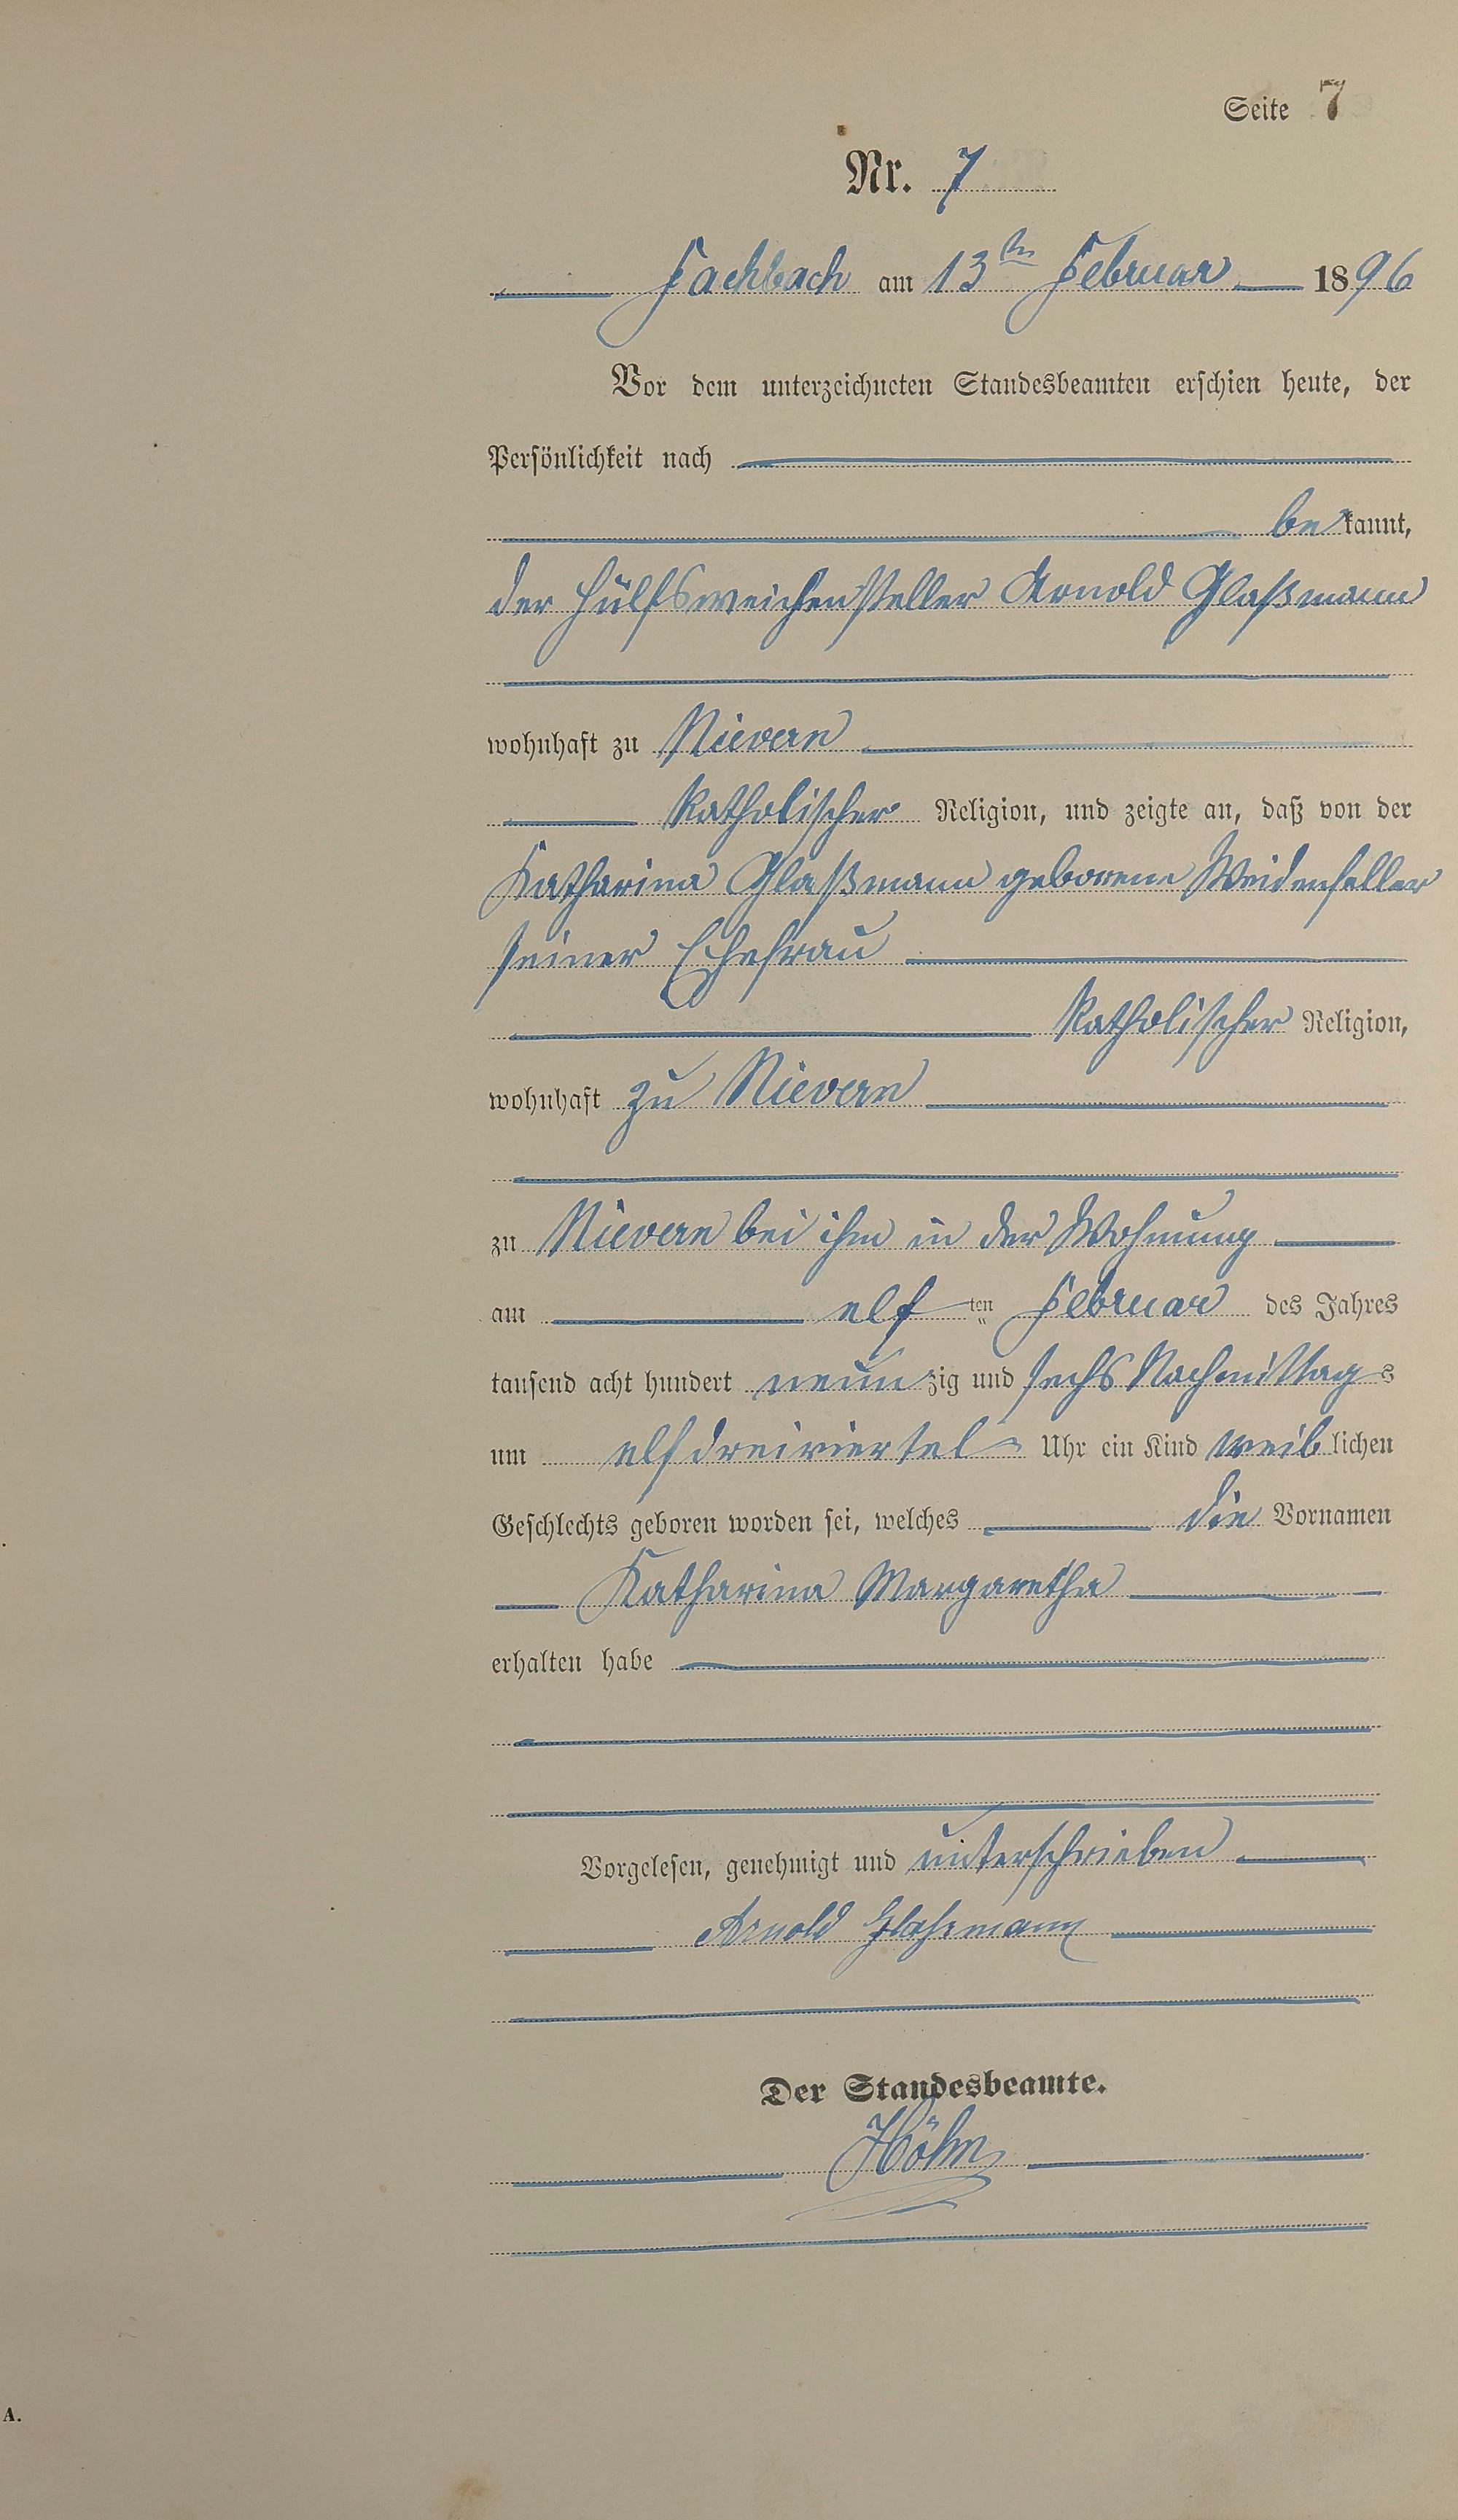 Seite 7
Nr. 7
Fachbach am 13ten Februar 1896
Vor dem unterzeichneten Standesbeamten erschien heute, der
Persönlichkeit nach
bekannt,
der Hülfsweichensteller Arnold Glaßmann
wohnhaft zu Nievern
katholischer Religion, und zeigte an, daß von der
Katharina Glaßmann geborene Weidenfeller
seiner Ehefrau
katholischer Religion,
wohnhaft zu Nievern
zu Nievern bei ihm in der Wohnung
am elf ten Februar des Jahres
tausend acht hundert neunzig und sechs Nachmittags
um elf dreiviertel Uhr ein Kind weiblichen
Geschlechts geboren worden sei, welches die Vornamen
Katharina Margaretha
erhalten habe
Vorgelesen, genehmigt und unterschrieben
Arnold Glaßmann
Der Standesbeamte.
Höhn
A.